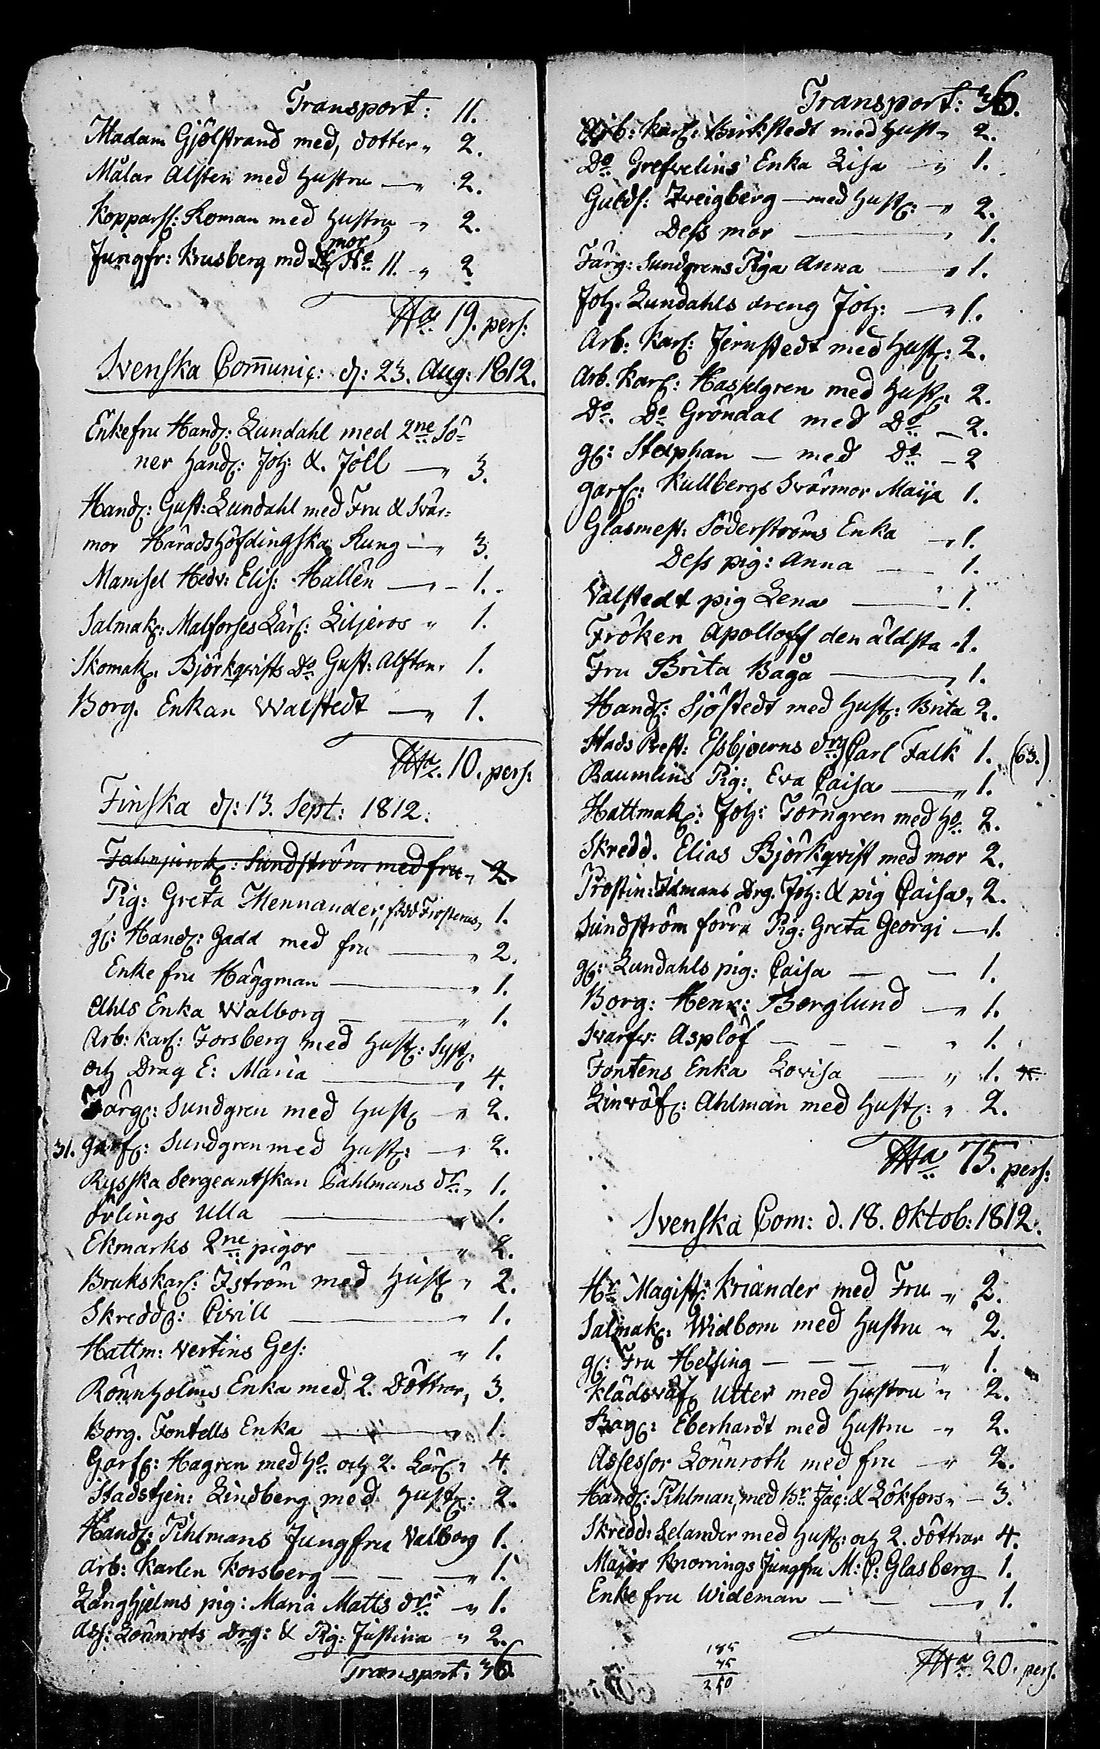 Transport: 11.
Madam Gjölstrand med, dotter „ 2.
Målar Alsten med Hustru — „ 2.
Kopparsl: Roman med Hustru „ 2.
mor
Jungfr: Busberg md No 11. „ 2
Sa 19. pers:
Svenska Communic: d: 23. Aug: 1812.
Enkefru Handl: Lundahl med 2ne Sö-
ner Handl: Joh: & Joll — „ 3.
Handl: Gust: Lundahl med Fru & Svär-
mor Häradshöfdingska Rung — „ 3.
Mamsel Hedv: Elis: Hallén — „ – 1.
Salmak: Malforses Lärl: Liljeros „ 1.
Skomak. Björkqvists Do Gust: Alsten „ 1.
Borg. Enkan Walstedt — „ 1.
Sa. 10. pers:
Finska d: 13. Sept: 1812.
Sundström med fru „ 2.
Pig: Greta Mennander, 1.
gl: Handl: Gadd med fru — „ 2.
Enke fru Häggman — „ 1.
Ahls Enka Walborg — „ 1.
Arb: karl: Forsberg med Hust: Syst:
och Drag E: Maria — „ 4.
Färg: Sundgren med Hust „ 2.
31. Garf: Sundgren med Hust: — „ 2.
Rysska Sergeantskan Dahlmans dr „ 1.
Örlings Ulla — 1.
Ekmarks 2ne pigor — „ 2.
Brukskarl: Iström med Hust „ 2.
Skredd: Civill — „ 1.
Hattm: Vertins Ges: „ 1.
Rönnholms Enka med 2. Döttrar, 3.
Borg. Fontells Enka — „ 1.
Garf: Hagren med Ho. och 2. Lärl: 4.
Stadstjen: Lindberg med Hust: 2.
Handl: Pihlmans Jungfru Valborg 1.
Arb: karlen Korsberg — — „ 1.
Långhjelms pig: Maria Matts dr: „ 1.
Ass: Lönnrots Drg: & Pig: Justina „ 2.
Transport: 36.
Transport: 36.
Arb: karl: Birkstedt med Hust „ 2.
Do Grefvelins Enka Lisa „ 1.
Guldf: Zweigberg — med Hust: „ 2.
Dess mor — „ 1.
Färg: Sundgrens Piga Anna — „ 1.
Joh. Lundahls dreng Joh: — „ 1.
Arb: karl: Jernstedt med Hust: 2.
Arb. karl: Hasselgren med Hust: 2.
Do. Do Gröndal med Do – 2.
gl: Stephan — med Do – 2
Garf: Kullbergs Svärmor Maija 1.
Glasmest: Söderströms Enka „ 1.
Dess pig: Anna — 1.
Valstedt pig Lena — 1.
Fröken Apolloff den äldsta „ 1.
Fru Brita Baga — „ 1.
Handl: Sjöstedt med Hust: Brita 2.
Stads Prest: Esbjörns drg Carl Falk 1. (63.)
Baumlins Pig: Eva Caisa — „ 1.
Hattmak: Joh: Törngren med Ho. 2.
Skredd. Elias Björkqvist med mor 2.
Prostin: Idmans Drg. Joh: & pig Caisa, 2.
Sundström förra Pig: Greta Georgi — 1.
gl: Lundahls pig: Caisa — — 1.
Borg: Henr: Berglund — „ 1.
Svarfv: Asplöf — — — „ 1.
Fontens Enka Lovisa — „ 1.
Linväf: Ahlman med Hust: „ 2.
Sa 75. pers:
Svenska Com: d. 18. Oktob: 1812.
Hr. Magist: Kriander med Fru „ 2.
Salmak: Widbom med Hustru „ 2.
gl: Fru Helsing — — — „ 1.
Klädsväf Utter med Hustru „ 2.
Bag: Eberhardt med Hustru „ 2.
Assessor Lönnroth med fru „ 2.
Handl: Pihlman, med Br Jac: & Lökfors „ – 3.
Skredd: Selander med Hust: och 2. döttrar 4.
Major Knorrings Jungfru M: C: Glasberg 1.
Enke fru Wideman — — „ 1.
Sa. 20. pers.
185
75
260